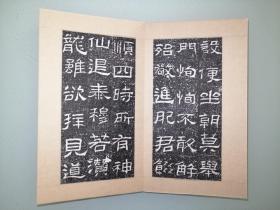 設便坐朝莫舉
門恂恂不敢解
殆敬進肥君餟
順四時所有神
仙退泰穆若潛
龍雖欲拜見道